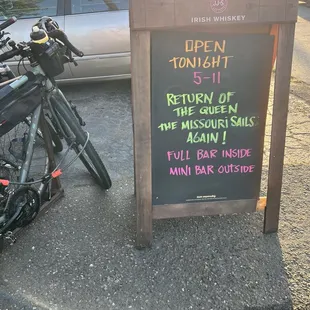 JJ&S
IRISH WHISKEY
OPEN
TONIGHT
5-11
RETURN OF
THE QUEEN
THE MISSOURI SAILS
AGAIN!
FULL BAR INSIDE
MINI BAR OUTSIDE